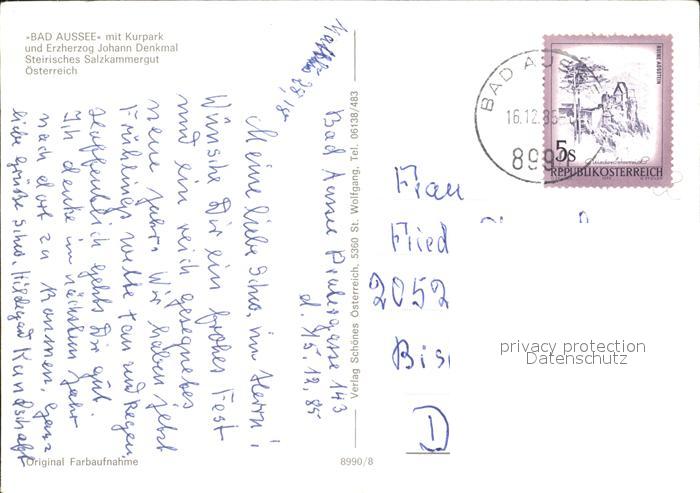 »BAD AUSSEE« mit Kurpark
und Erzherzog Johann Denkmal
Steirisches Salzkammergut
Österreich
Bad Aussee 143
d. 15.12.85
Meine liebe Schw. im Herrn!
Wünsche Dir ein frohes Fest
und ein reich gesegnetes
neue Jahr. Wir haben jetzt
Frühlings wette tau und Regen.
Hoffentlich gehts Dir gut.
Ich denke im nächsten Jahr
nach dort zu kommen, ganz
liebe grüße Schw. Hildegard Kundschaft
Original Farbaufnahme
8990/8
Verlag Schönes Österreich, 5360 St. Wolfgang, Tel. 06138/483
BAD AUS
16.12.85
8990
RUINE AGGSTEIN
5s
REPUBLIK ÖSTERREICH
Frau
Fried
2052
Bis
D
privacy protection
Datenschutz